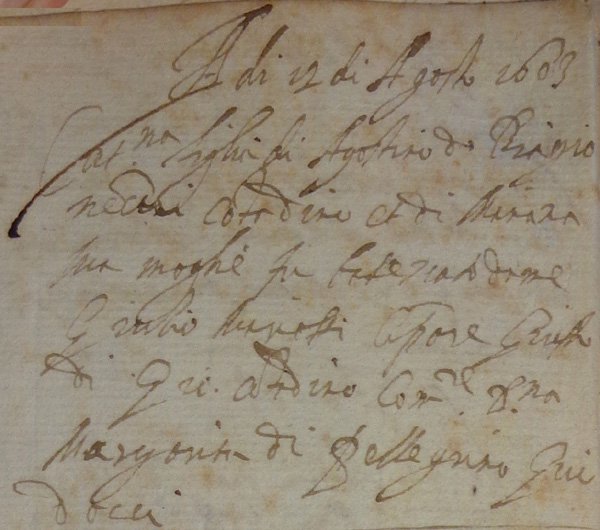 A di 12 di Agosto 1603
Cat.na figlia di Agostino di Biagio
contadino et di Maria
sua moglie fu battezata da me
Giulio Compare Giusto
di Gio. contadino Com.re D.na
Margarita di Pellegrino Gui
docci